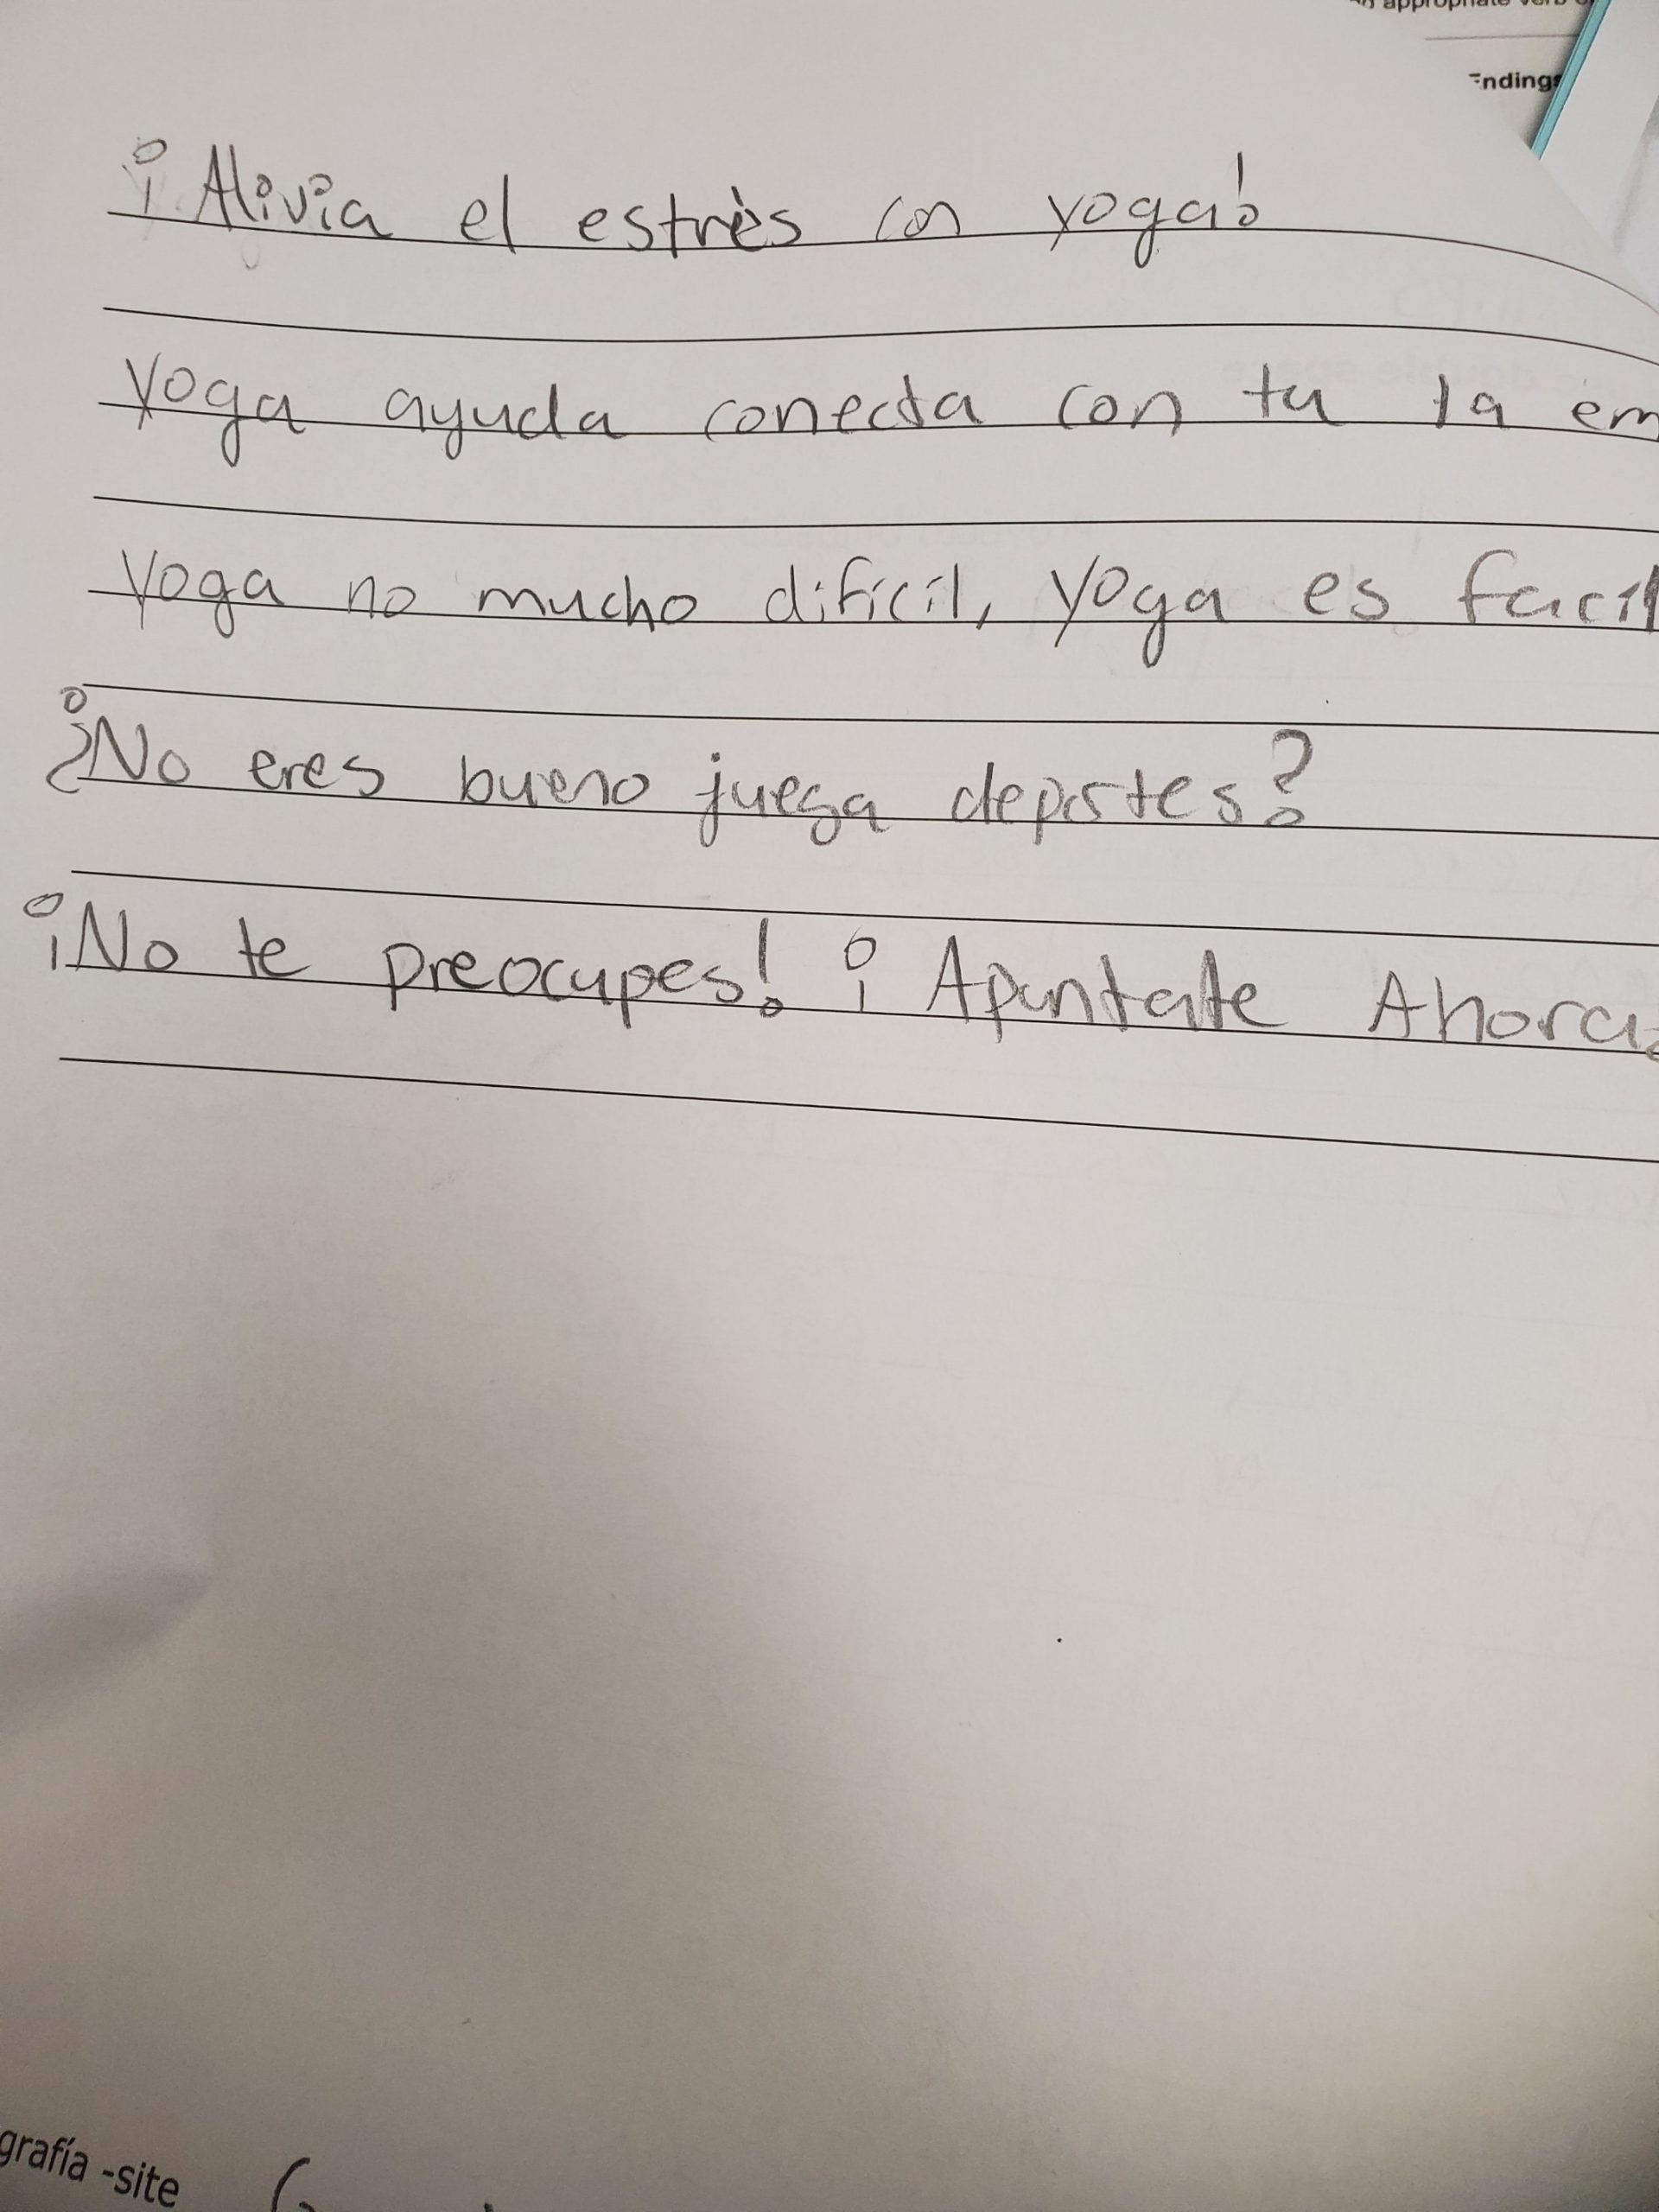 appropriate verb
Endings
¡Alivia el estrès con yoga!
Yoga ayuda conecta con tu la em
Yoga no mucho dificil, yoga es facil
¿No eres bueno juega deportes?
¡No te preocupes! ¡Apuntate Ahora!
grafía -site